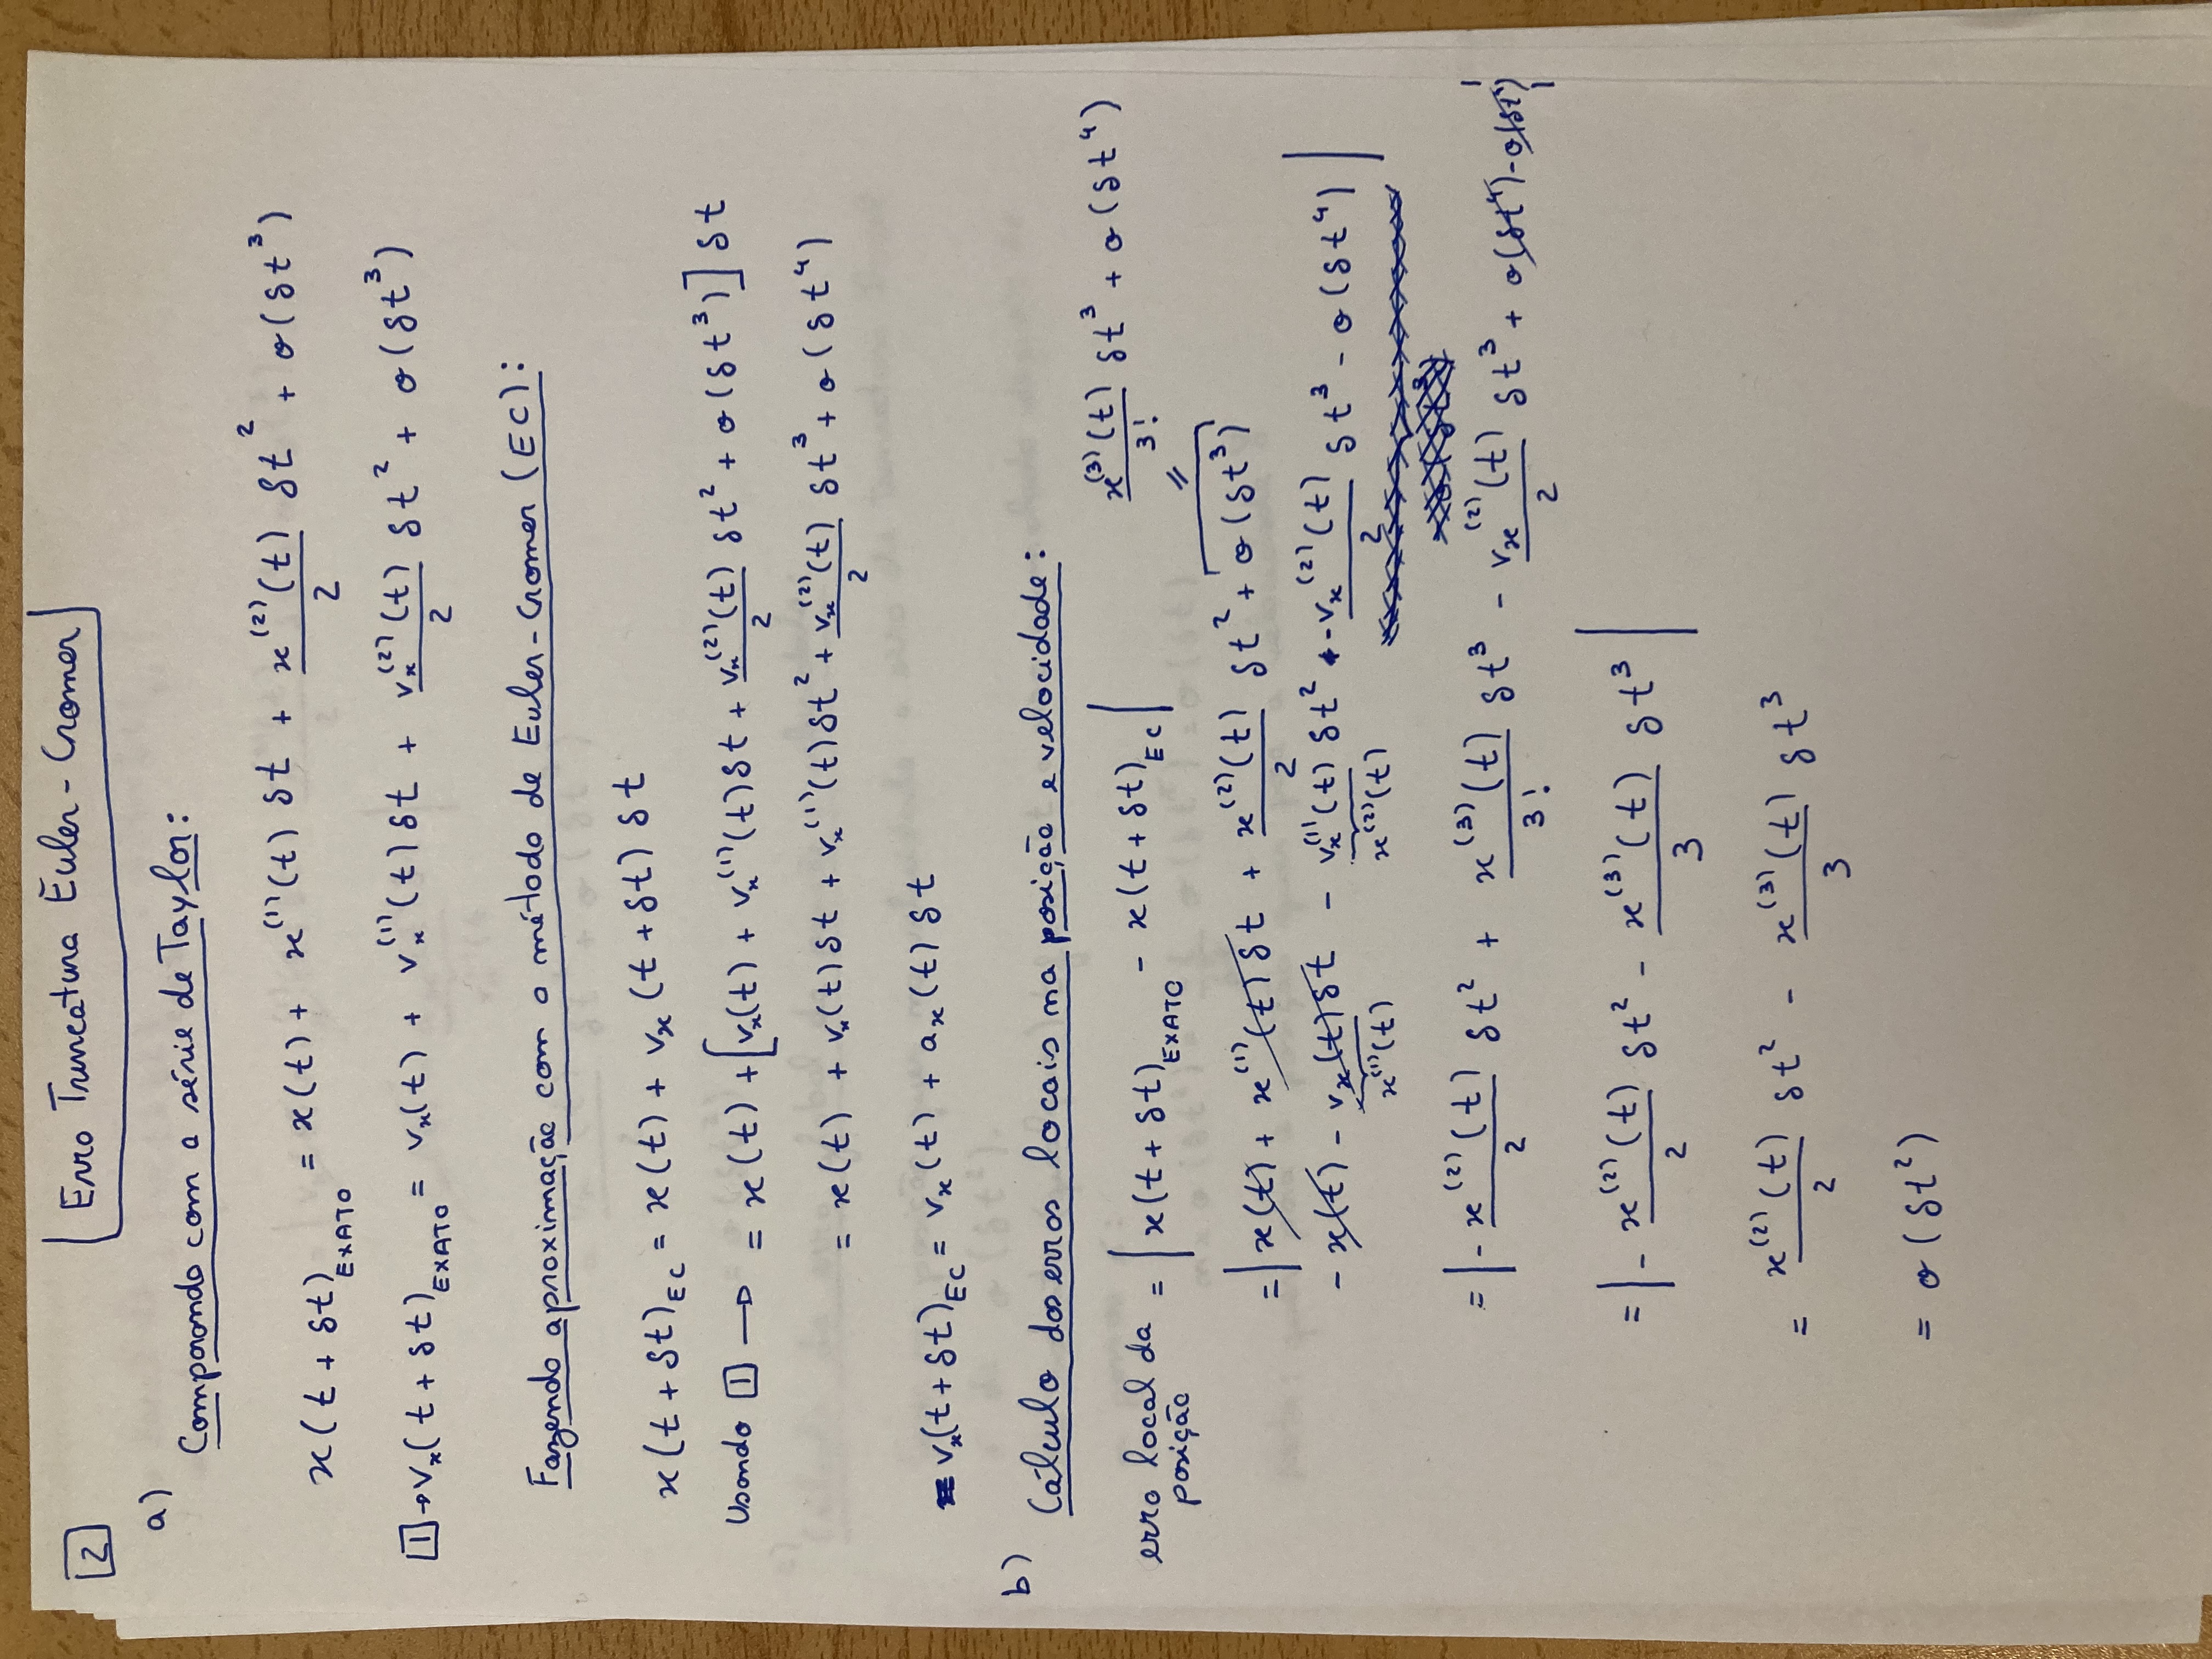 2
Erro Truncatura Euler-Cromer
a)
Comparando com a série de Taylor:
x(t + δt)_EXATO = x(t) + x^(1)(t) δt + x^(2)(t)/2 δt^2 + o(δt^3)
1 → v_x(t + δt)_EXATO = v_x(t) + v_x^(1)(t) δt + v_x^(2)(t)/2 δt^2 + o(δt^3)
Fazendo aproximação com o método de Euler-Cromer (EC):
x(t + δt)_EC = x(t) + v_x(t + δt) δt
Usando 1 → = x(t) + [v_x(t) + v_x^(1)(t) δt + v_x^(2)(t)/2 δt^2 + o(δt^3)] δt
= x(t) + v_x(t) δt + v_x^(1)(t) δt^2 + v_x^(2)(t)/2 δt^3 + o(δt^4)
v_x(t + δt)_EC = v_x(t) + a_x(t) δt
b)
Cálculo dos erros locais na posição e velocidade:
erro local da posição = |x(t + δt)_EXATO - x(t + δt)_EC|
x^(3)(t)/3! δt^3 + o(δt^4)
=
= |x(t) + x^(1)(t) δt + x^(2)(t)/2 δt^2 + o(δt^3)
- x(t) - v_x(t) δt - v_x^(1)(t) δt^2 - v_x^(2)(t)/2 δt^3 - o(δt^4)|
x^(1)(t) x^(2)(t)
= |- x^(2)(t)/2 δt^2 + x^(3)(t)/3! δt^3 - v_x^(2)(t)/2 δt^3 + o(δt^4) - o(δt^4)|
= |- x^(2)(t)/2 δt^2 - x^(3)(t)/3 δt^3|
= x^(2)(t)/2 δt^2 - x^(3)(t)/3 δt^3
= o(δt^2)